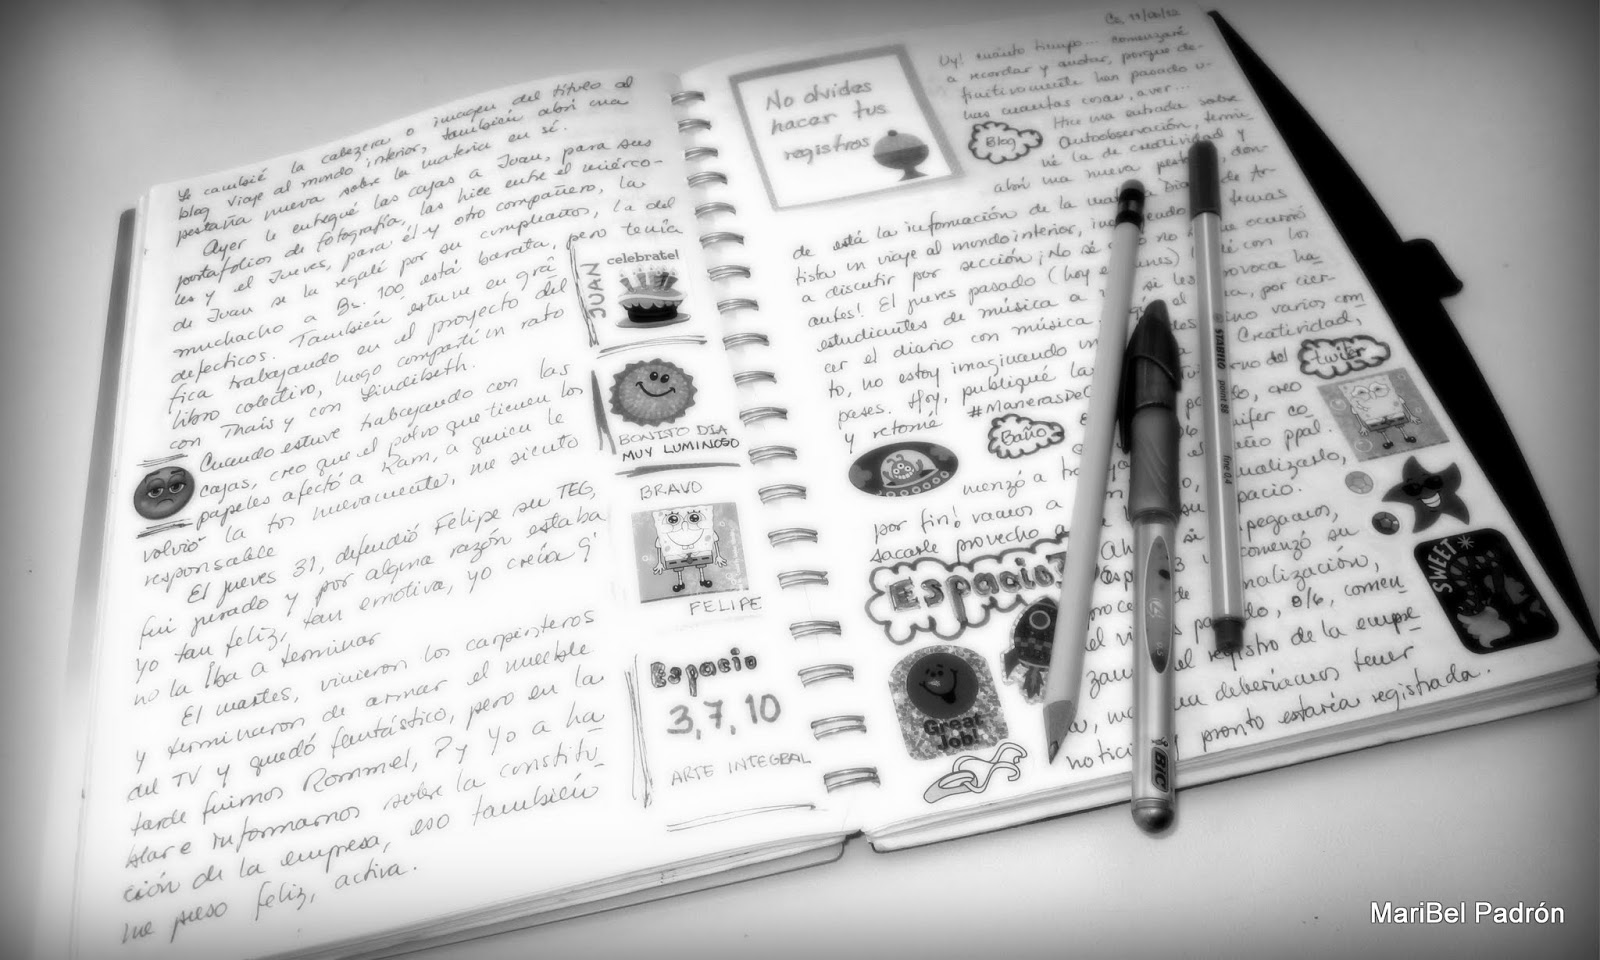 Le cambié la cabezera o imagen del título al
blog viaje al mundo interior, también abrí una
pestaña nueva sobre la materia en sí.
Ayer le entregué las cajas a Juan, para sus
portafolios de fotografía, las hice entre el miérco-
les y el Jueves, para él y otro compañero, la
de Juan se la regalé por su cumpleaños, la del
muchacho a Bs. 100 está barata, pero tenía
defecticos. También estuve en grá-
fica trabajando en el proyecto del
libro colectivo, luego compartí un rato
con Thais y con Lindibeth.
Cuando estuve trabajando con las
cajas, creo que el polvo que tienen los
papeles afectó a Ram, a quien le
volvió la tos nuevamente, me siento
responsable
El jueves 31, defendió Felipe su TEG,
fui jurado y por alguna razón estaba
yo tan feliz, tan emotiva, yo creía q'
no la iba a terminar
El martes, vinieron los carpinteros
y terminaron de armar el mueble
del TV y quedó fantástico, pero en la
tarde fuimos Rommel, P y Yo a ha-
blar e informarnos sobre la constitu-
ción de la empresa, eso también
me puso feliz, activa.
JUAN
celebrate!
BONITO DIA
MUY LUMINOSO
BRAVO
FELIPE
Espacio
3, 7, 10
ARTE INTEGRAL
No olvides
hacer tus
registros
Uy! cuánto tiempo... comenzaré
a recordar y anotar, porque de-
finitivamente han pasado u-
nas cuantas cosas, a ver...
Blog
Hice una entrada sobre
Autoobservación, termi-
né la de creatividad y
abrí una nueva don-
de está la información de la materia Diario de Ar-
tista un viaje al mundo interior, temas
a discutir por sección ¡No sé no ocurrió
antes! El jueves pasado (hoy es con los
estudiantes de música a si les provoca ha-
cer el diario con música, por cier-
to, no estoy imaginando un sino varios com
pases. Hoy, publiqué la Creatividad,
y retomé
twiter
Baño
menzó a
ppal.
por fin! vamos a
sacarle provecho a
pacio.
Espacio
comenzó su
proce de nalización,
el vi pasado, 8/6, comen
zam el registro de la empre
deberíamos tener
notici y pronto estaría registrada.
Great
Job!
SWEET
STABILO
point 88
fine 0,4
BIC
MariBel Padrón